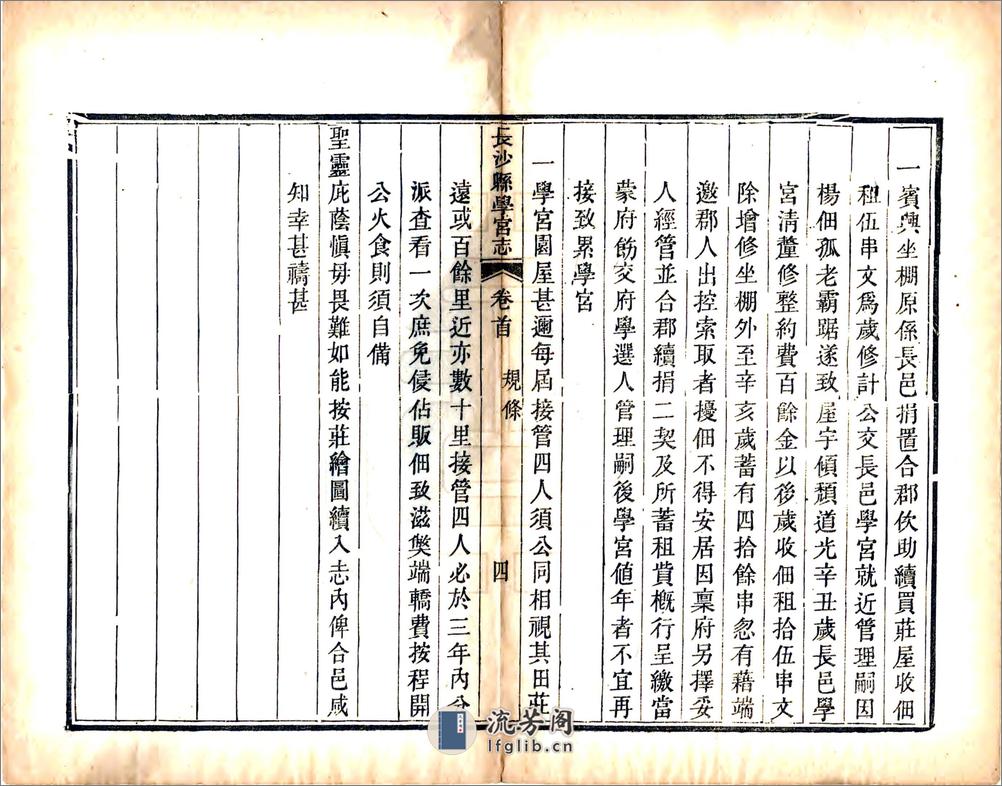 一賓興坐棚原係長邑捐置合郡佽助續買莊屋收佃
租伍串文爲歲修計公交長邑學宮就近管理嗣因
楊佃孤老霸踞遂致屋宇傾頹道光辛丑歲長邑學
宮清釐修整約費百餘金以後歲收佃租拾伍串文
除增修坐棚外至辛亥歲蓄有四拾餘串忽有藉端
邀郡人出控索取者擾佃不得安居因稟府另擇妥
人經管並合郡續捐二契及所蓄租貲概行呈繳當
蒙府飭交府學選人管理嗣後學宮值年者不宜再
接致累學宮
一學宮園屋甚邇每屆接管四人須公同相視其田莊
長沙縣學宮志 卷首 規條 四
遠或百餘里近亦數十里接管四人必於三年內分
派查看一次庶免侵佔販佃致滋獘端轎費按程開
公火食則須自備
聖靈庇蔭愼毋畏難如能按莊繪圖續入志內俾合邑咸
知幸甚禱甚
流芳阁
lfglib.cn